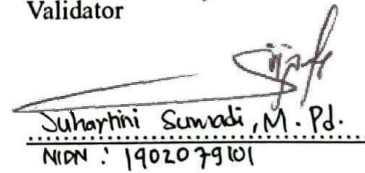 Validator
Suhartini Sumadi, M. Pd.
NIDN : 1902079101